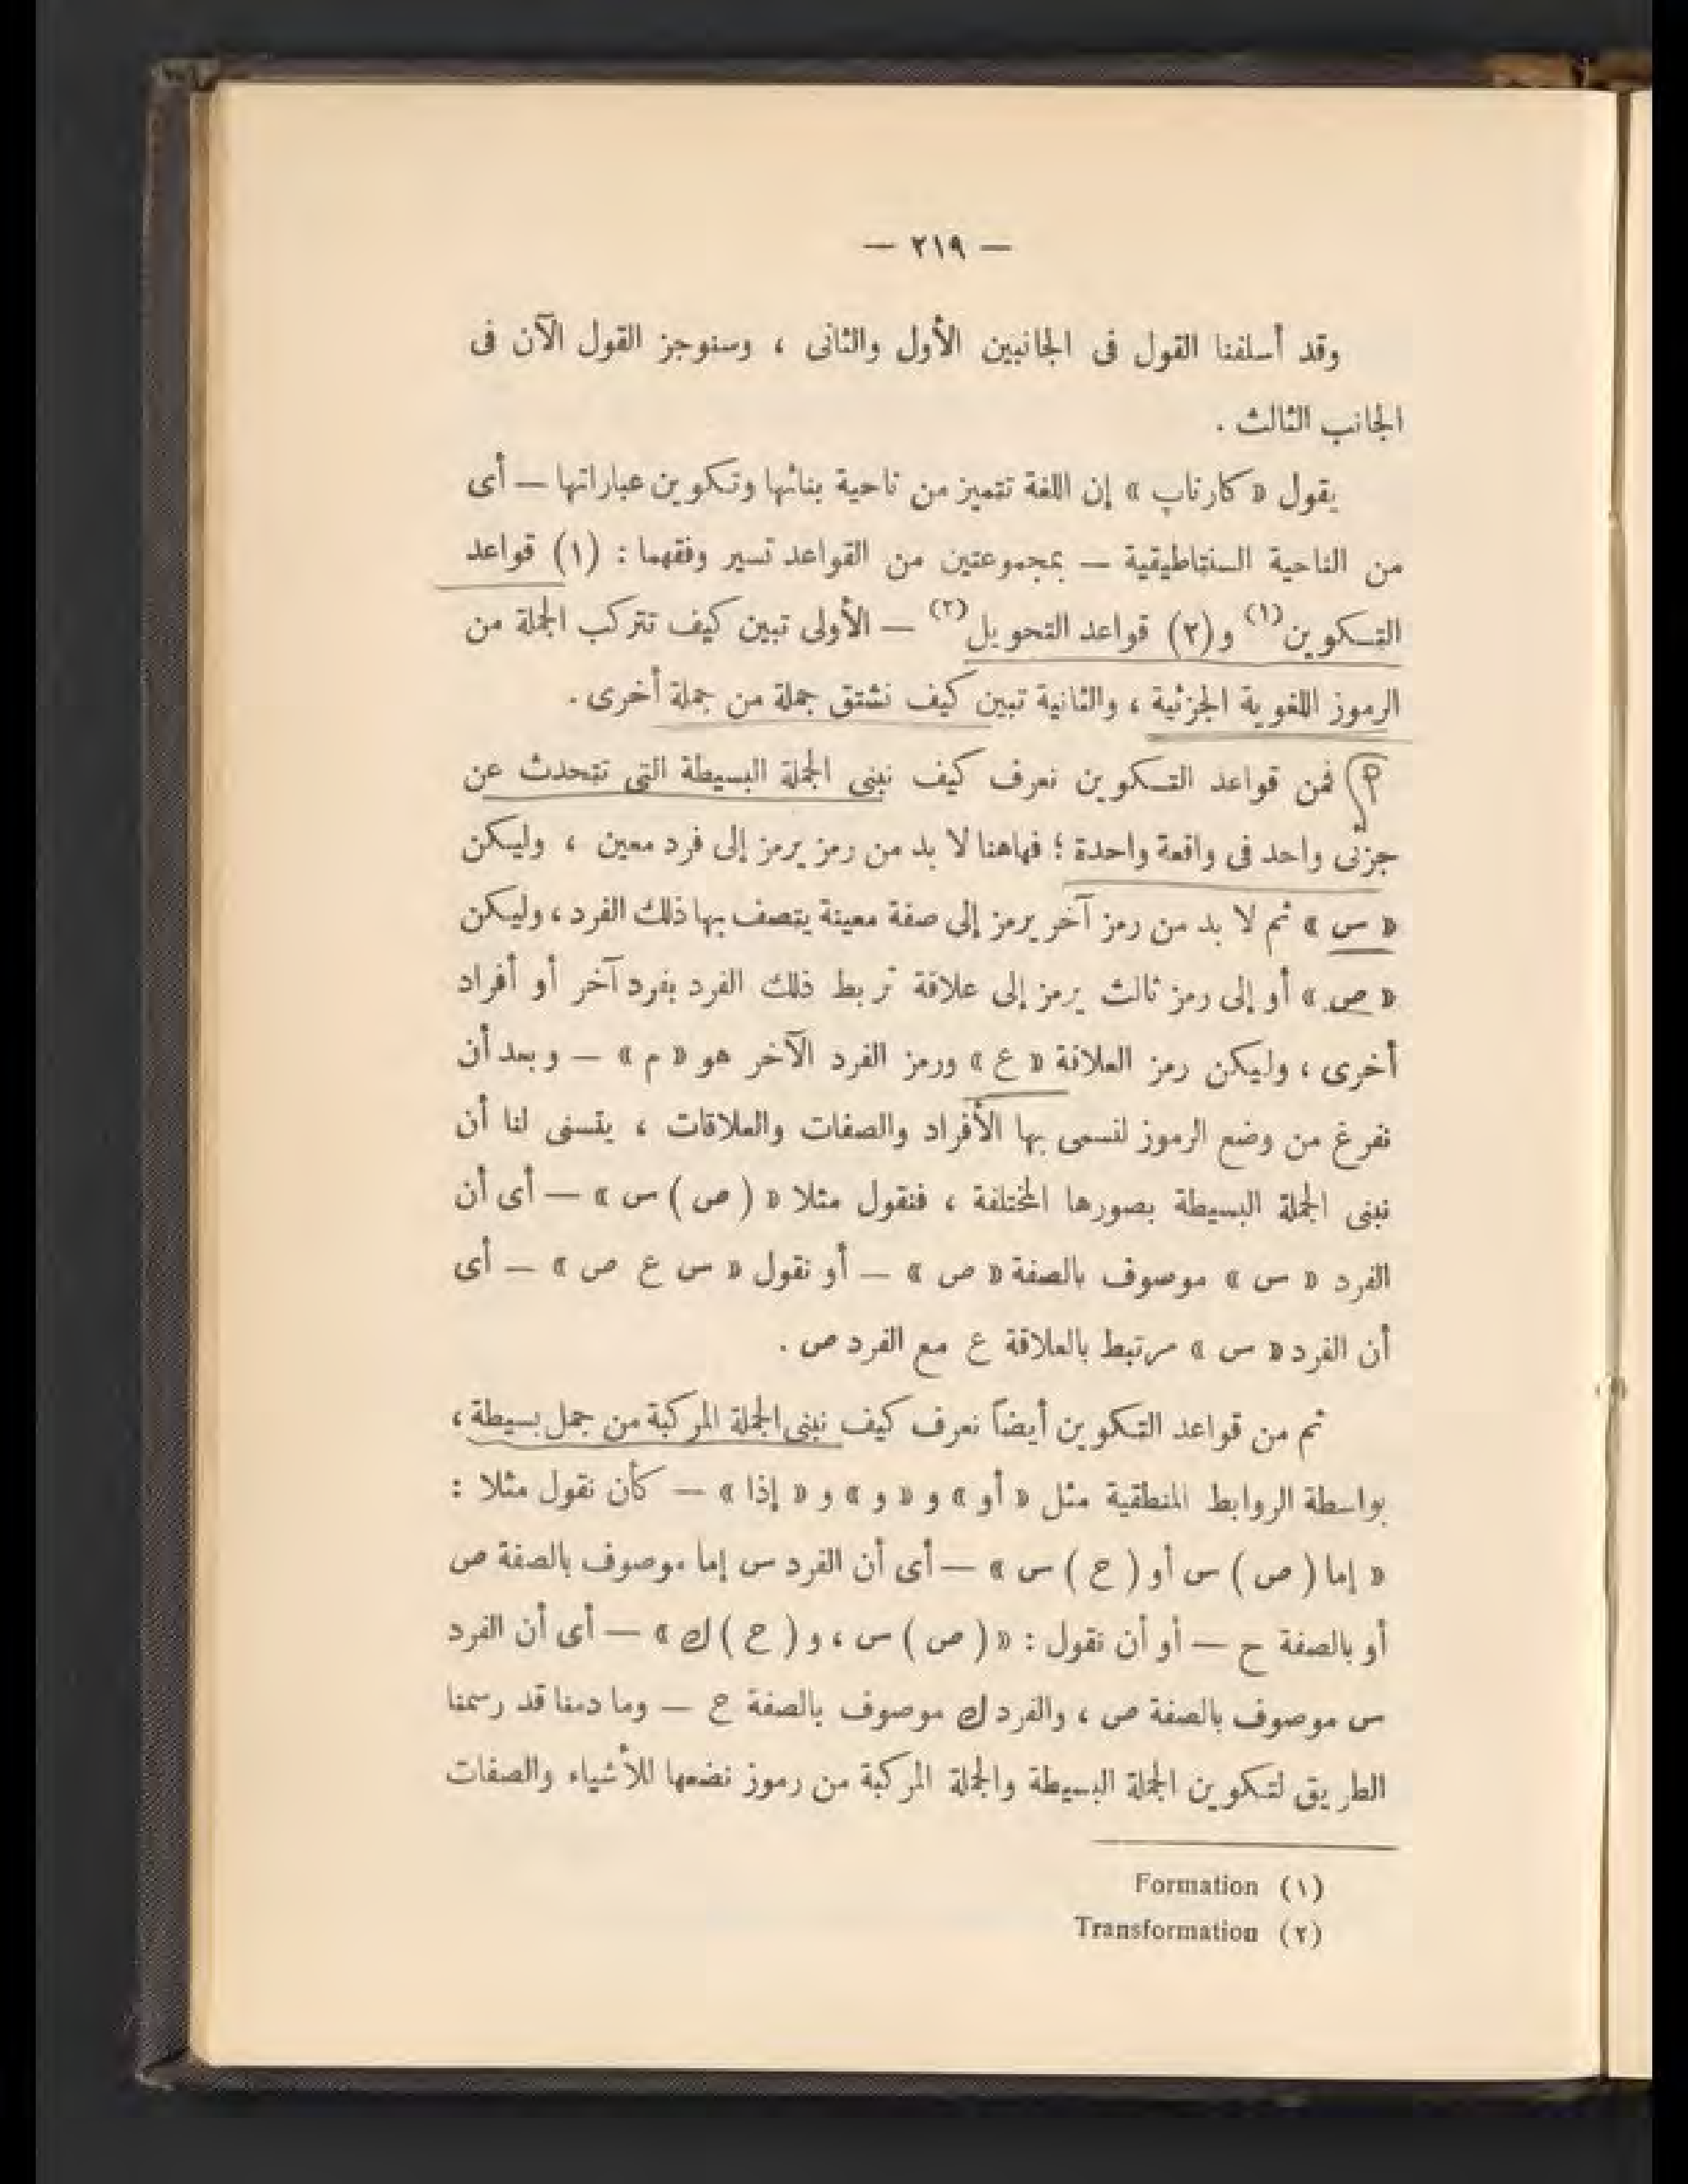 — ٢١٩ —
وقد أسلفنا القول فى الجانبين الأول والثانى ، وسنوجز القول الآن فى
الجانب الثالث .
يقول « كارناپ » إن اللغة تتميز من ناحية بنائها وتكوين عباراتها — أى
من الناحية السنتاطيقية — بمجموعتين من القواعد تسير وفقهما : (١) قواعد
التكوين(١) و(٢) قواعد التحويل(٢) — الأولى تبين كيف تتركب الجملة من
الرموز اللغوية الجزئية ، والثانية تبين كيف نشتق جملة من جملة أخرى .
فمن قواعد التكوين نعرف كيف نبنى الجملة البسيطة التى تتحدث عن
جزئى واحد فى واقعة واحدة ؛ فهاهنا لا بد من رمز يرمز إلى فرد معين ، وليكن
« س » ثم لا بد من رمز آخر يرمز إلى صفة معينة يتصف بها ذلك الفرد ، وليكن
« ص » أو إلى رمز ثالث يرمز إلى علاقة تربط ذلك الفرد بفرد آخر أو أفراد
أخرى ، وليكن رمز العلاقة « ع » ورمز الفرد الآخر هو « م » — وبعد أن
نفرغ من وضع الرموز لنسمى بها الأفراد والصفات والعلاقات ، يتسنى لنا أن
نبنى الجملة البسيطة بصورها المختلفة ، فنقول مثلا « ( ص ) س » — أى أن
الفرد « س » موصوف بالصفة « ص » — أو نقول « س ع ص » — أى
أن الفرد « س » مرتبط بالعلاقة ع مع الفرد ص .
ثم من قواعد التكوين أيضاً نعرف كيف نبنى الجملة المركبة من جمل بسيطة ،
بواسطة الروابط المنطقية مثل « أو » و « و » و « إذا » — كأن نقول مثلا :
« إما ( ص ) س أو ( ح ) س » — أى أن الفرد س إما موصوف بالصفة ص
أو بالصفة ح — أو أن نقول : « ( ص ) س ، و ( ح ) ك » — أى أن الفرد
س موصوف بالصفة ص ، والفرد ك موصوف بالصفة ح — وما دمنا قد رسمنا
الطريق لتكوين الجملة البسيطة والجملة المركبة من رموز نضعها للأشياء والصفات
(١) Formation
(٢) Transformation